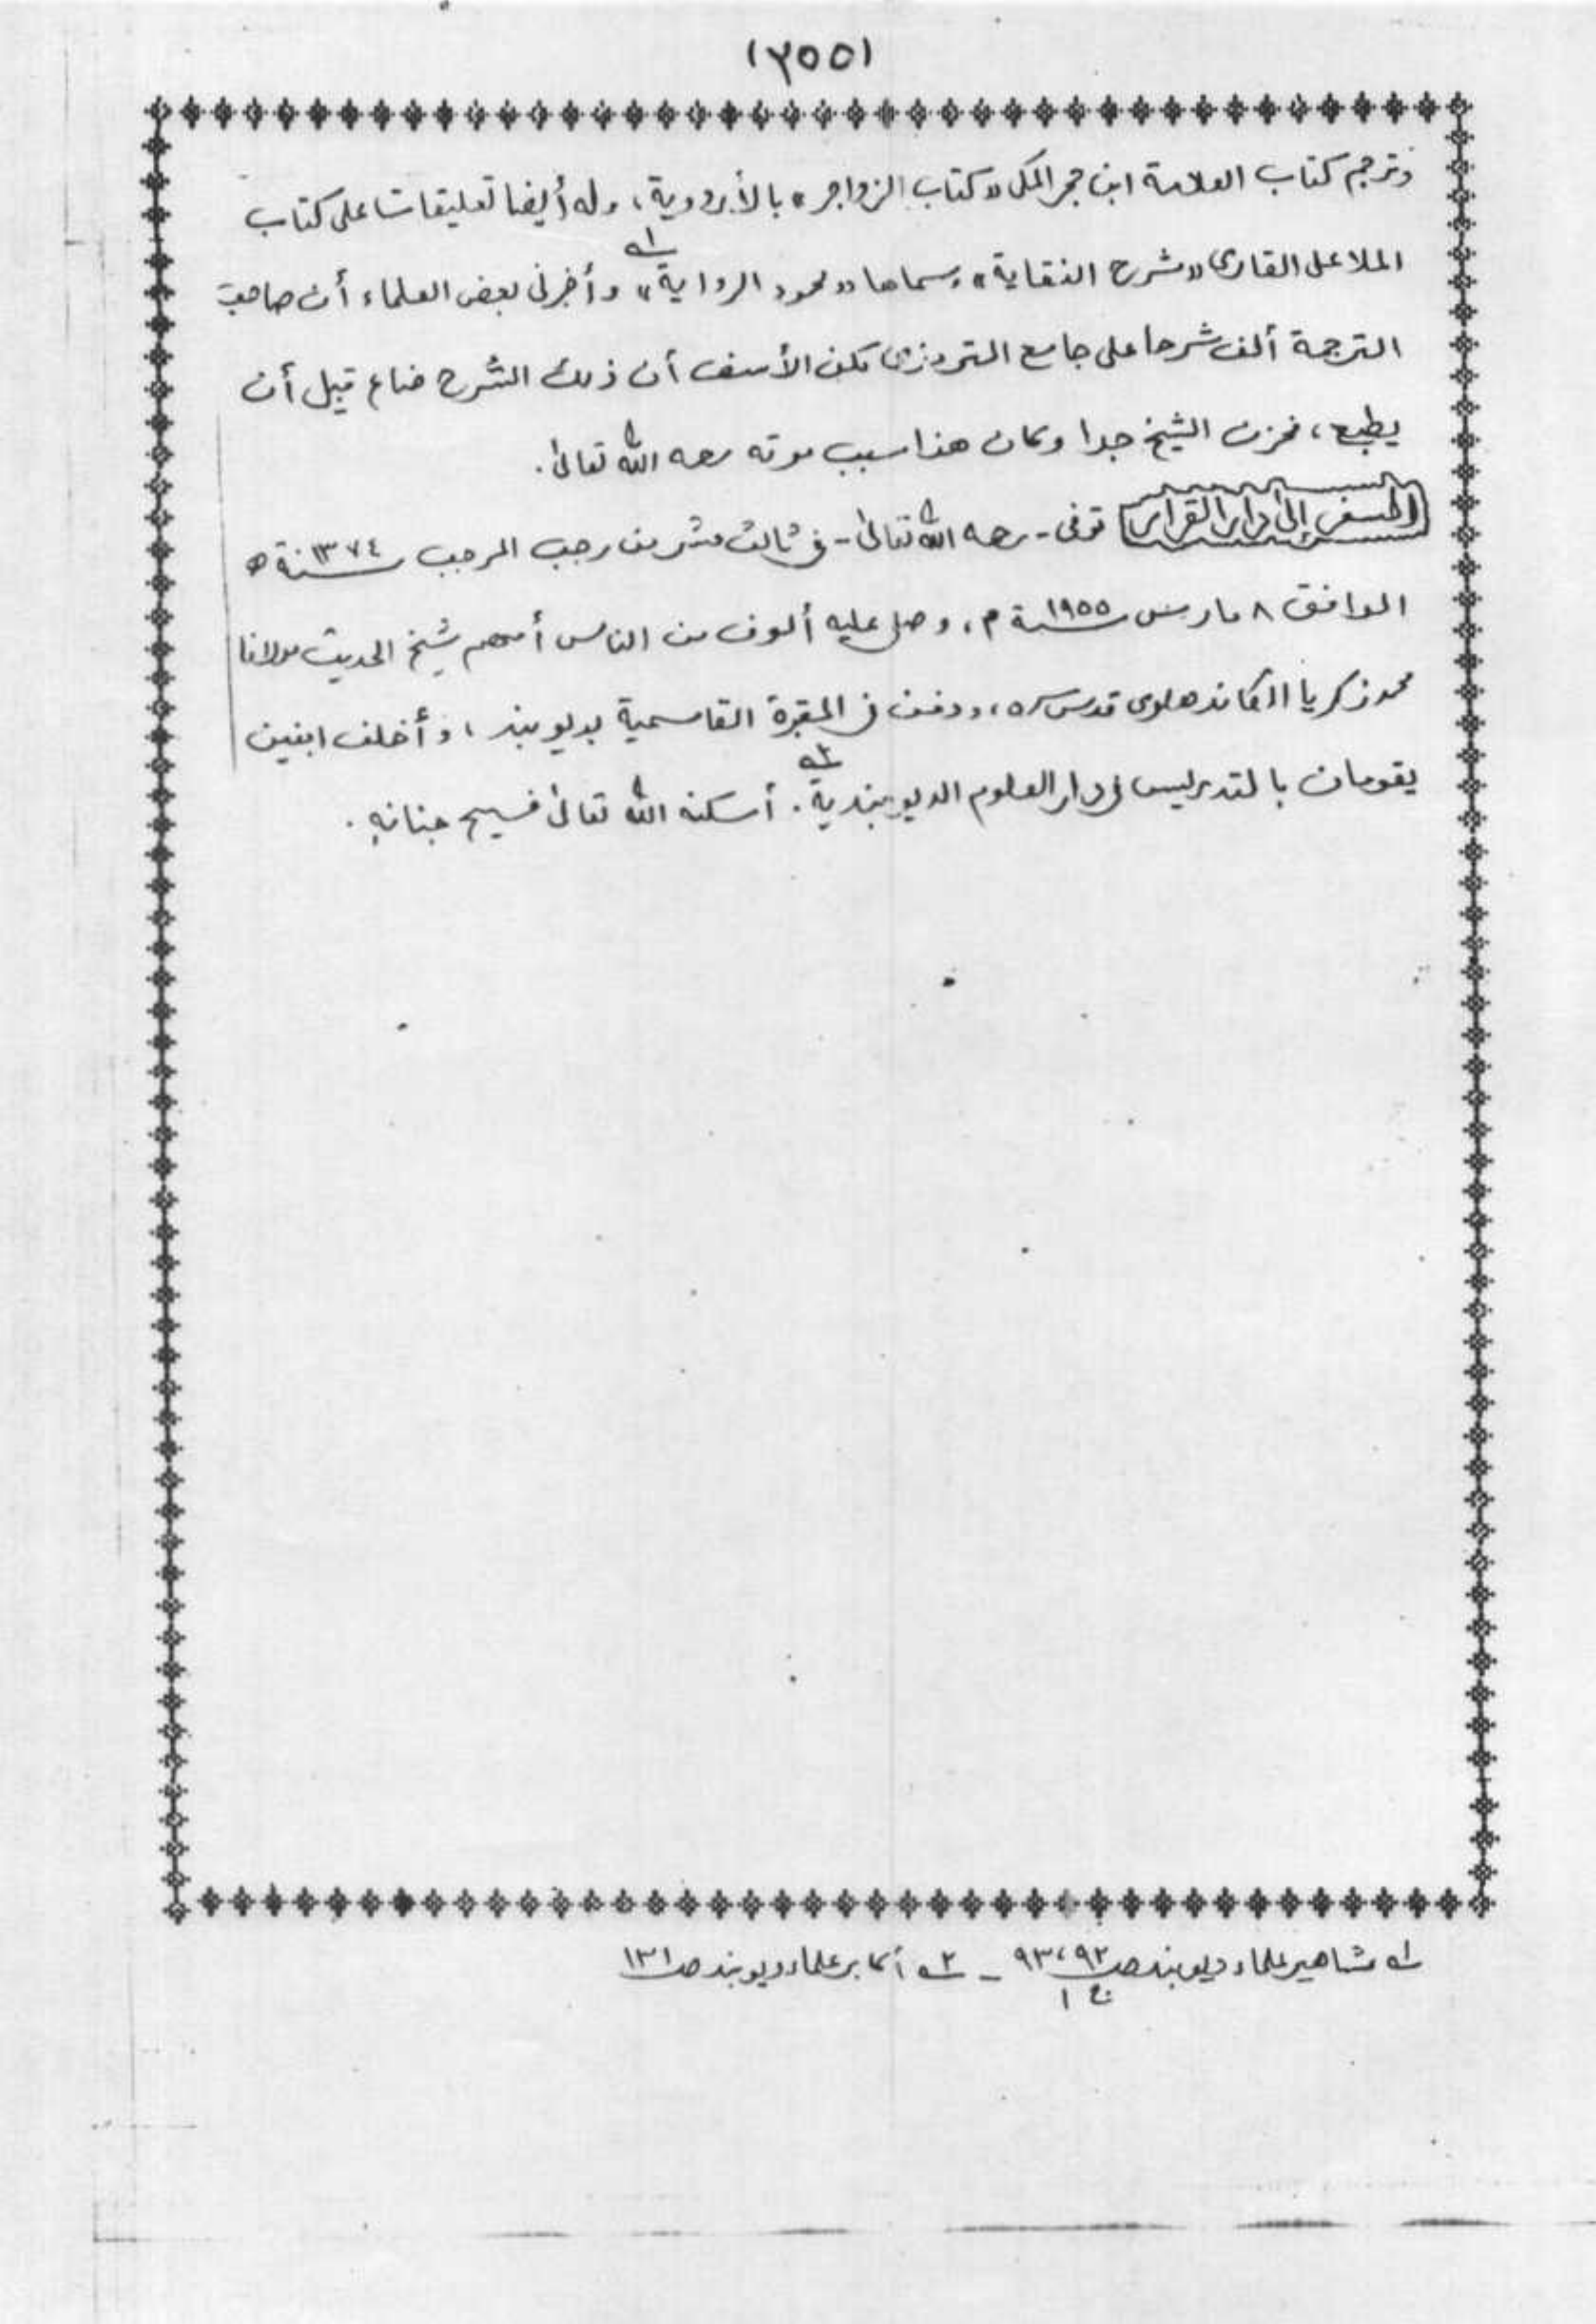 (٣٥٥)
وترجم كتاب العلامة ابن حجر المكى "كتاب الزواجر" بالأردوية، وله أيضا تعليقات على كتاب
الملا على القارى "شرح النقاية" وسماها "محمود الرواية" ١ـه وأخبرنى بعض العلماء أن صاحب
الترجمة ألف شرحا على جامع الترمذى لكن الأسف أن ذلك الشرح ضاع قبل أن
يطبع، فحزن الشيخ جدا وكان هذا سبب موته رحمه الله تعالى.
السفر إلى دار القرار توفى - رحمه الله تعالى - فى ثالث عشر من رجب المرجب سنة ١٣٧٤ ه
الموافق ٨ مارس سنة ١٩٥٥ م، وصلى عليه ألوف من الناس أمهم شيخ الحديث مولانا
محمد زكريا الكاندهلوى قدس سره، ودفن فى المقبرة القاسمية بديوبند، وأخلف ابنين
يقومان بالتدريس فى دار العلوم الديوبندية ٢ـه. أسكنه الله تعالى فسيح جنانه.
١ـه مشاهير علماء ديوبند صـ ٩٢، ٩٣ ج ١ - ٢ـه أكابر علماء ديوبند صـ ١٣١